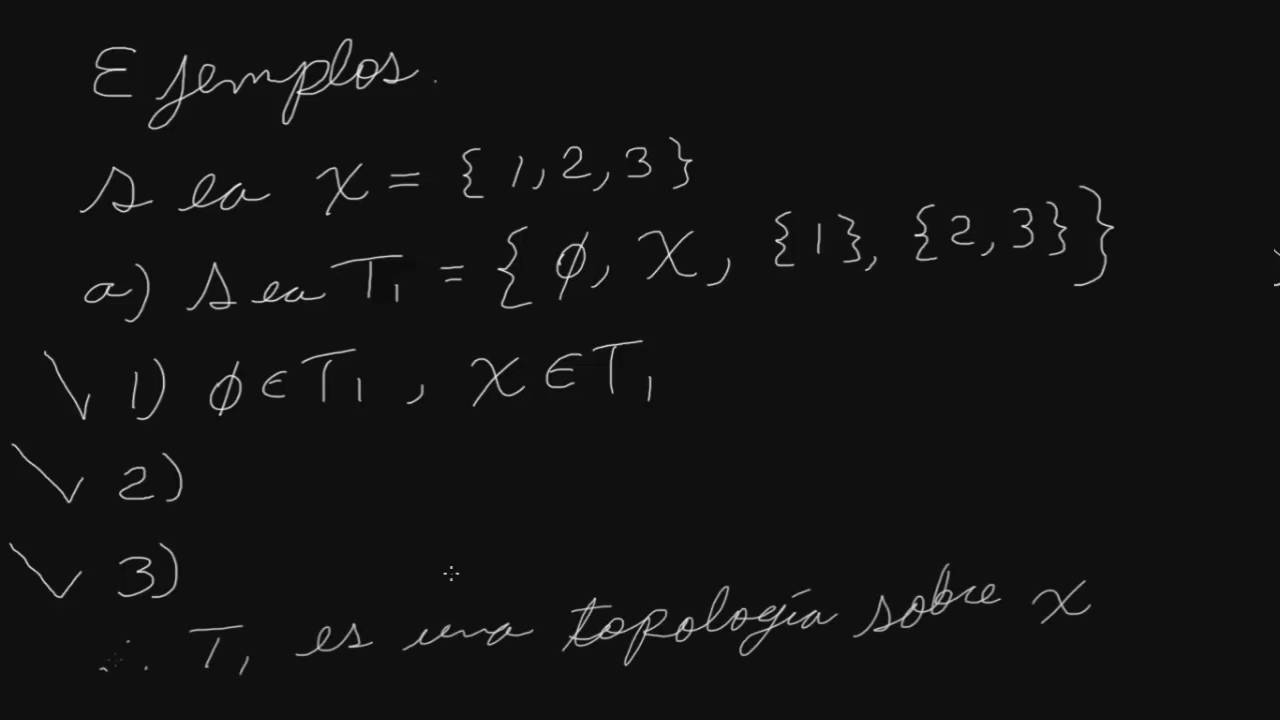 Ejemplos.
Sea X = {1,2,3}
a) Sea T₁ = {ϕ, X, {1}, {2,3}}
✓ 1) ϕ∈T₁, X∈T₁
✓ 2)
✓ 3)
∴ T₁ es una topología sobre X